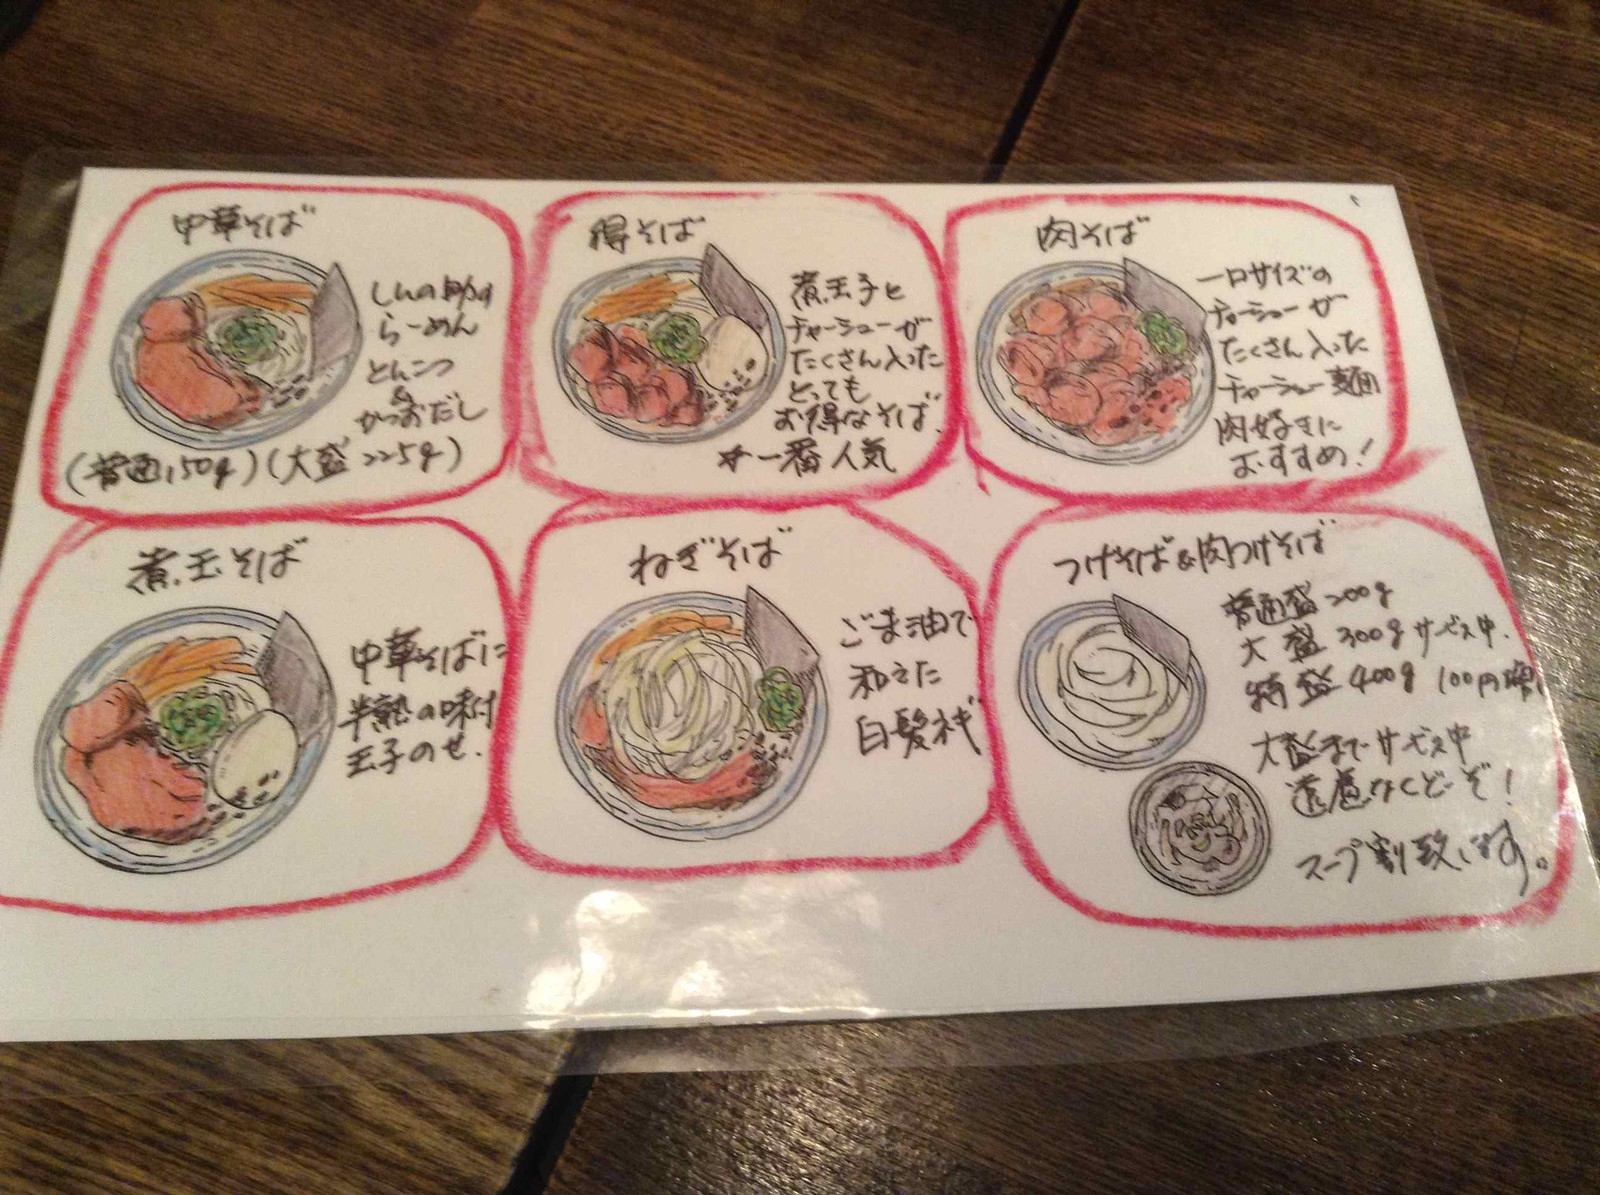 中華そば
しんの助の
らーめん
とんこつ
&
かつおだし
(普通150g)(大盛225g)
得そば
煮玉子と
チャーシューが
たくさん入った
とっても
お得なそば.
一番人気
肉そば
一口サイズの
チャーシューが
たくさん入った
チャーシュー麺
肉好きに
おすすめ!
煮玉そば
中華そばに
半熟の味付
玉子のせ.
ねぎそば
ごま油で
和えた
白髪ネギ
つけそば&肉つけそば
普通盛200g
大盛300gサービス中.
特盛400g 100円増
大盛までサービス中
遠慮なくどーぞ!
スープ割致します。